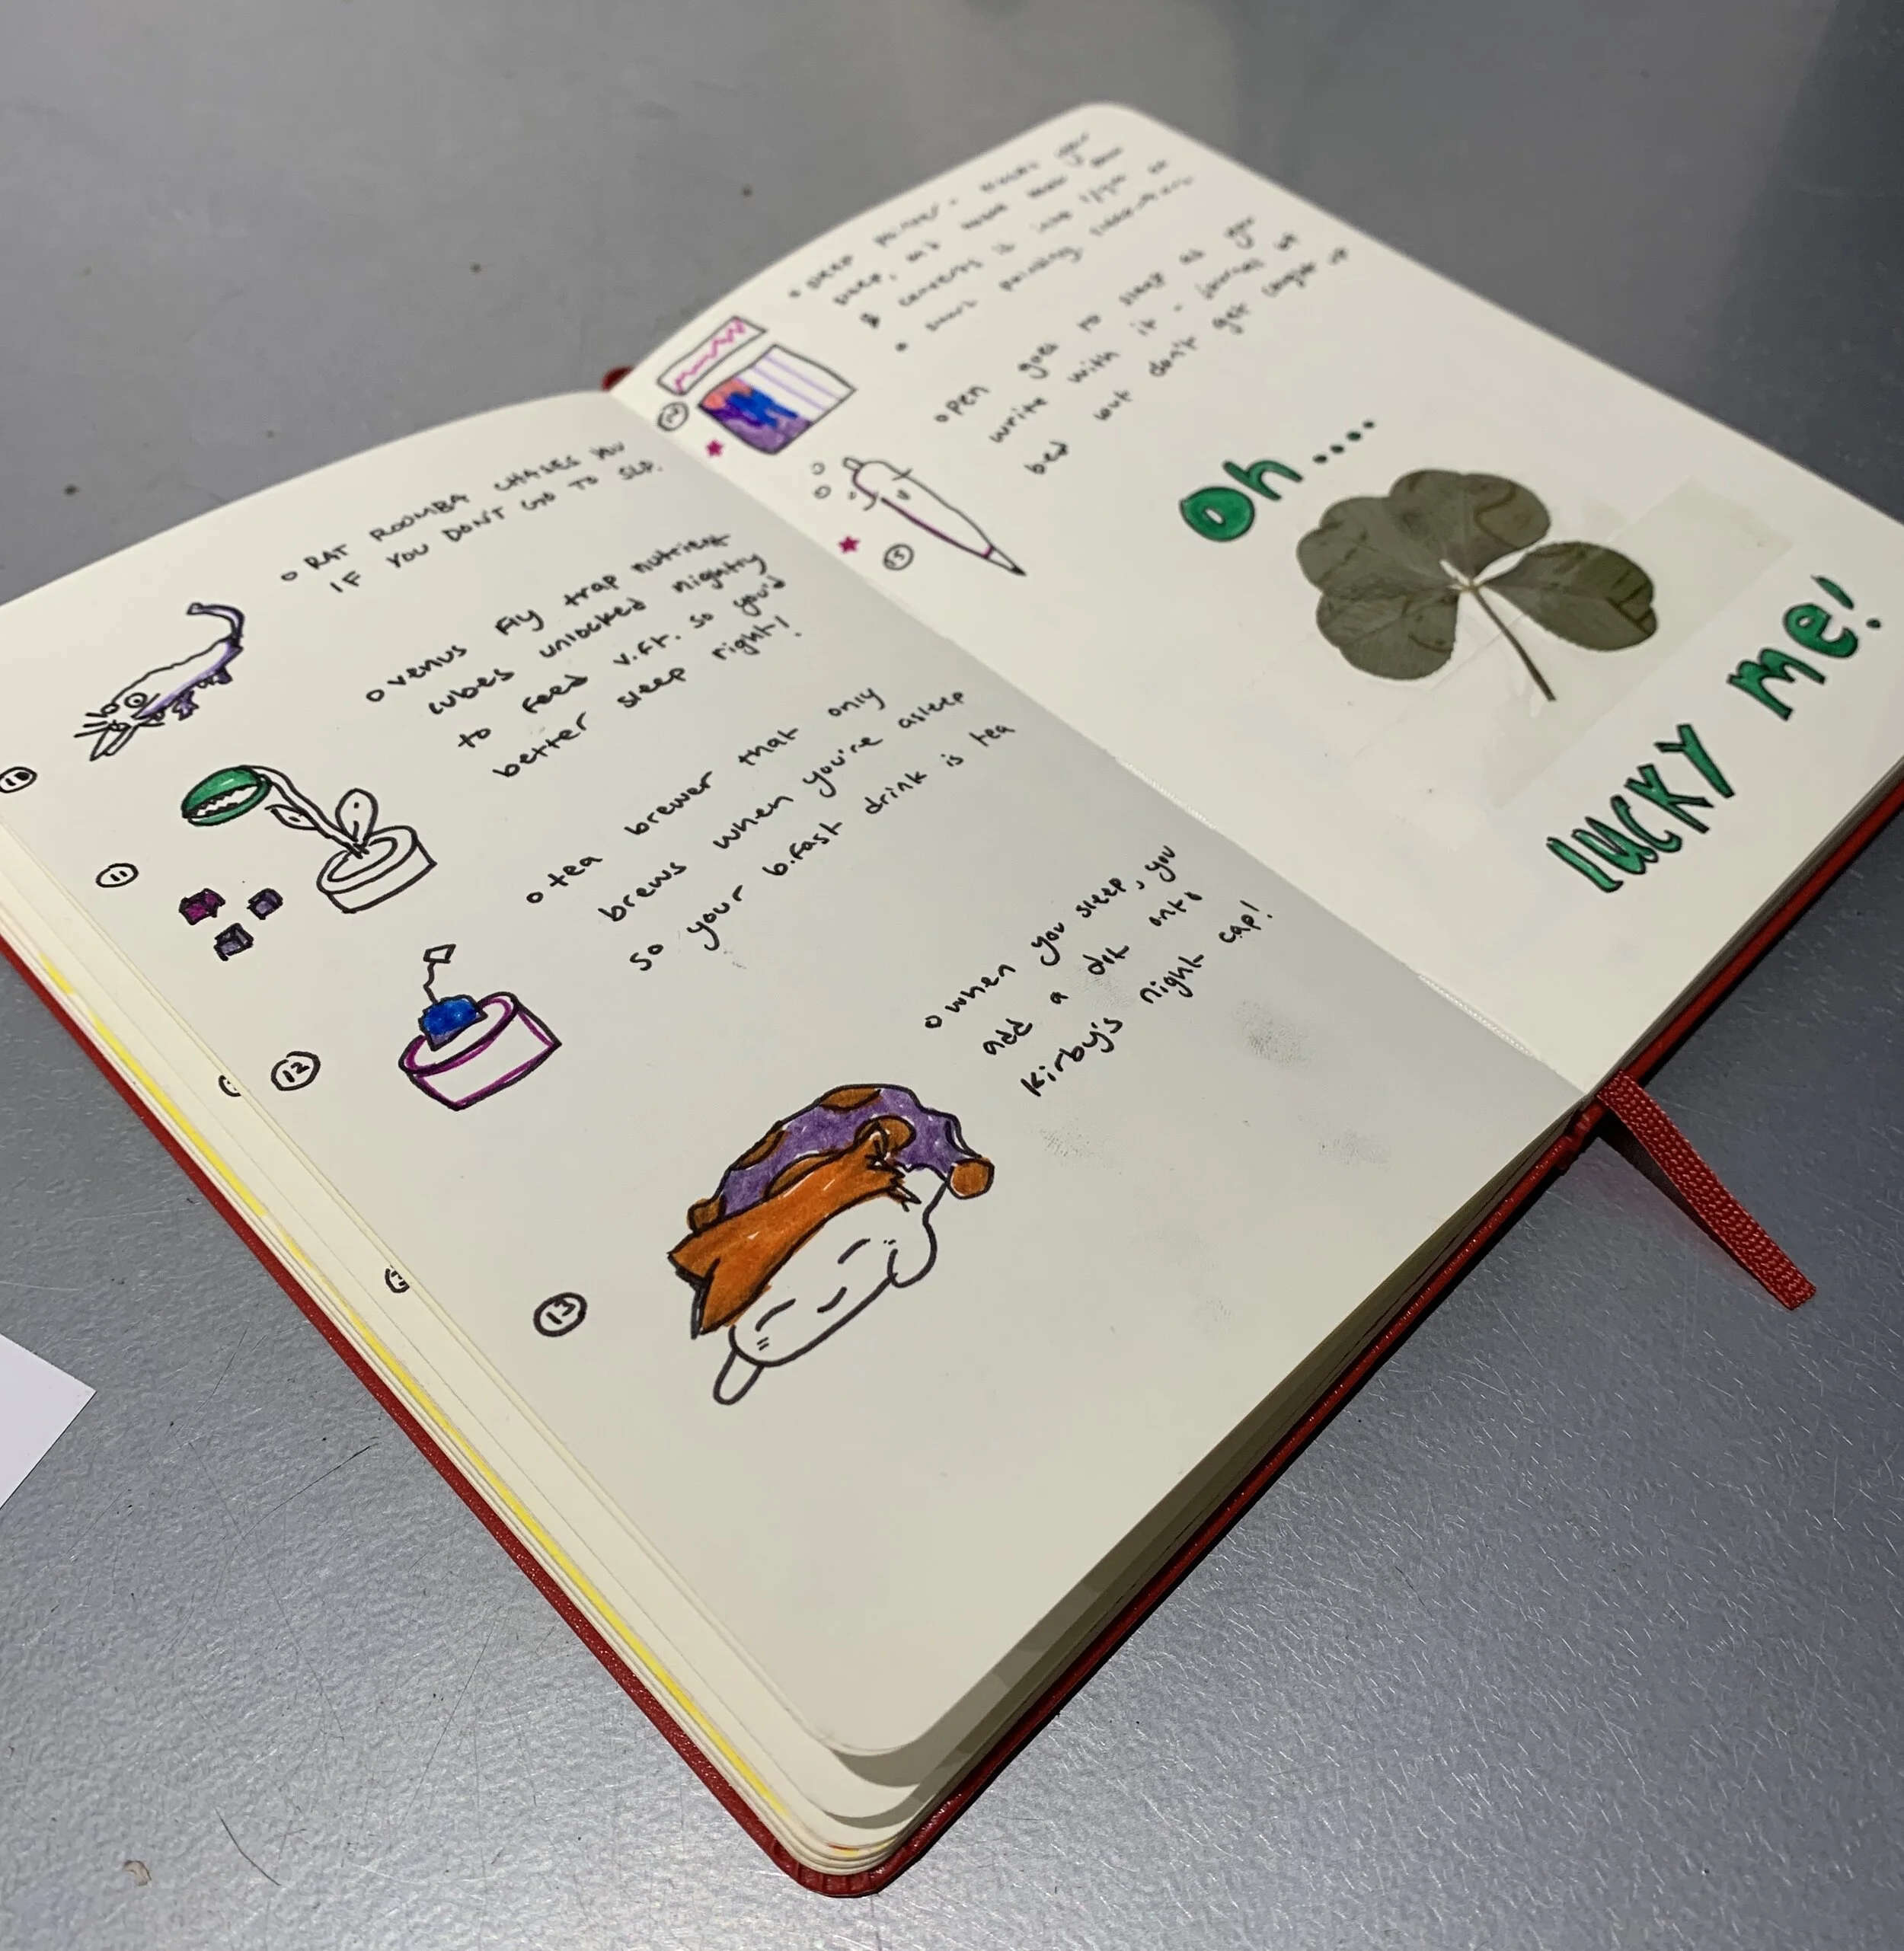 o RAT ROOMBA CHASES YOU
IF YOU DON'T GO TO SLP.
10
o venus fly trap nutrient
cubes unlocked nightly
to feed v.ft. so you'd
better sleep right!
11
o tea brewer that only
brews when you're asleep
so your b.fast drink is tea
12
o when you sleep, you
add a dot onto
Kirby's night cap!
13
o sleep painter - tracks your
sleep, and
& converts it into
painting
14
open goes to sleep as you
write with it - journal
bed but don't get caught up
15
Oh.....
LUCKY me!